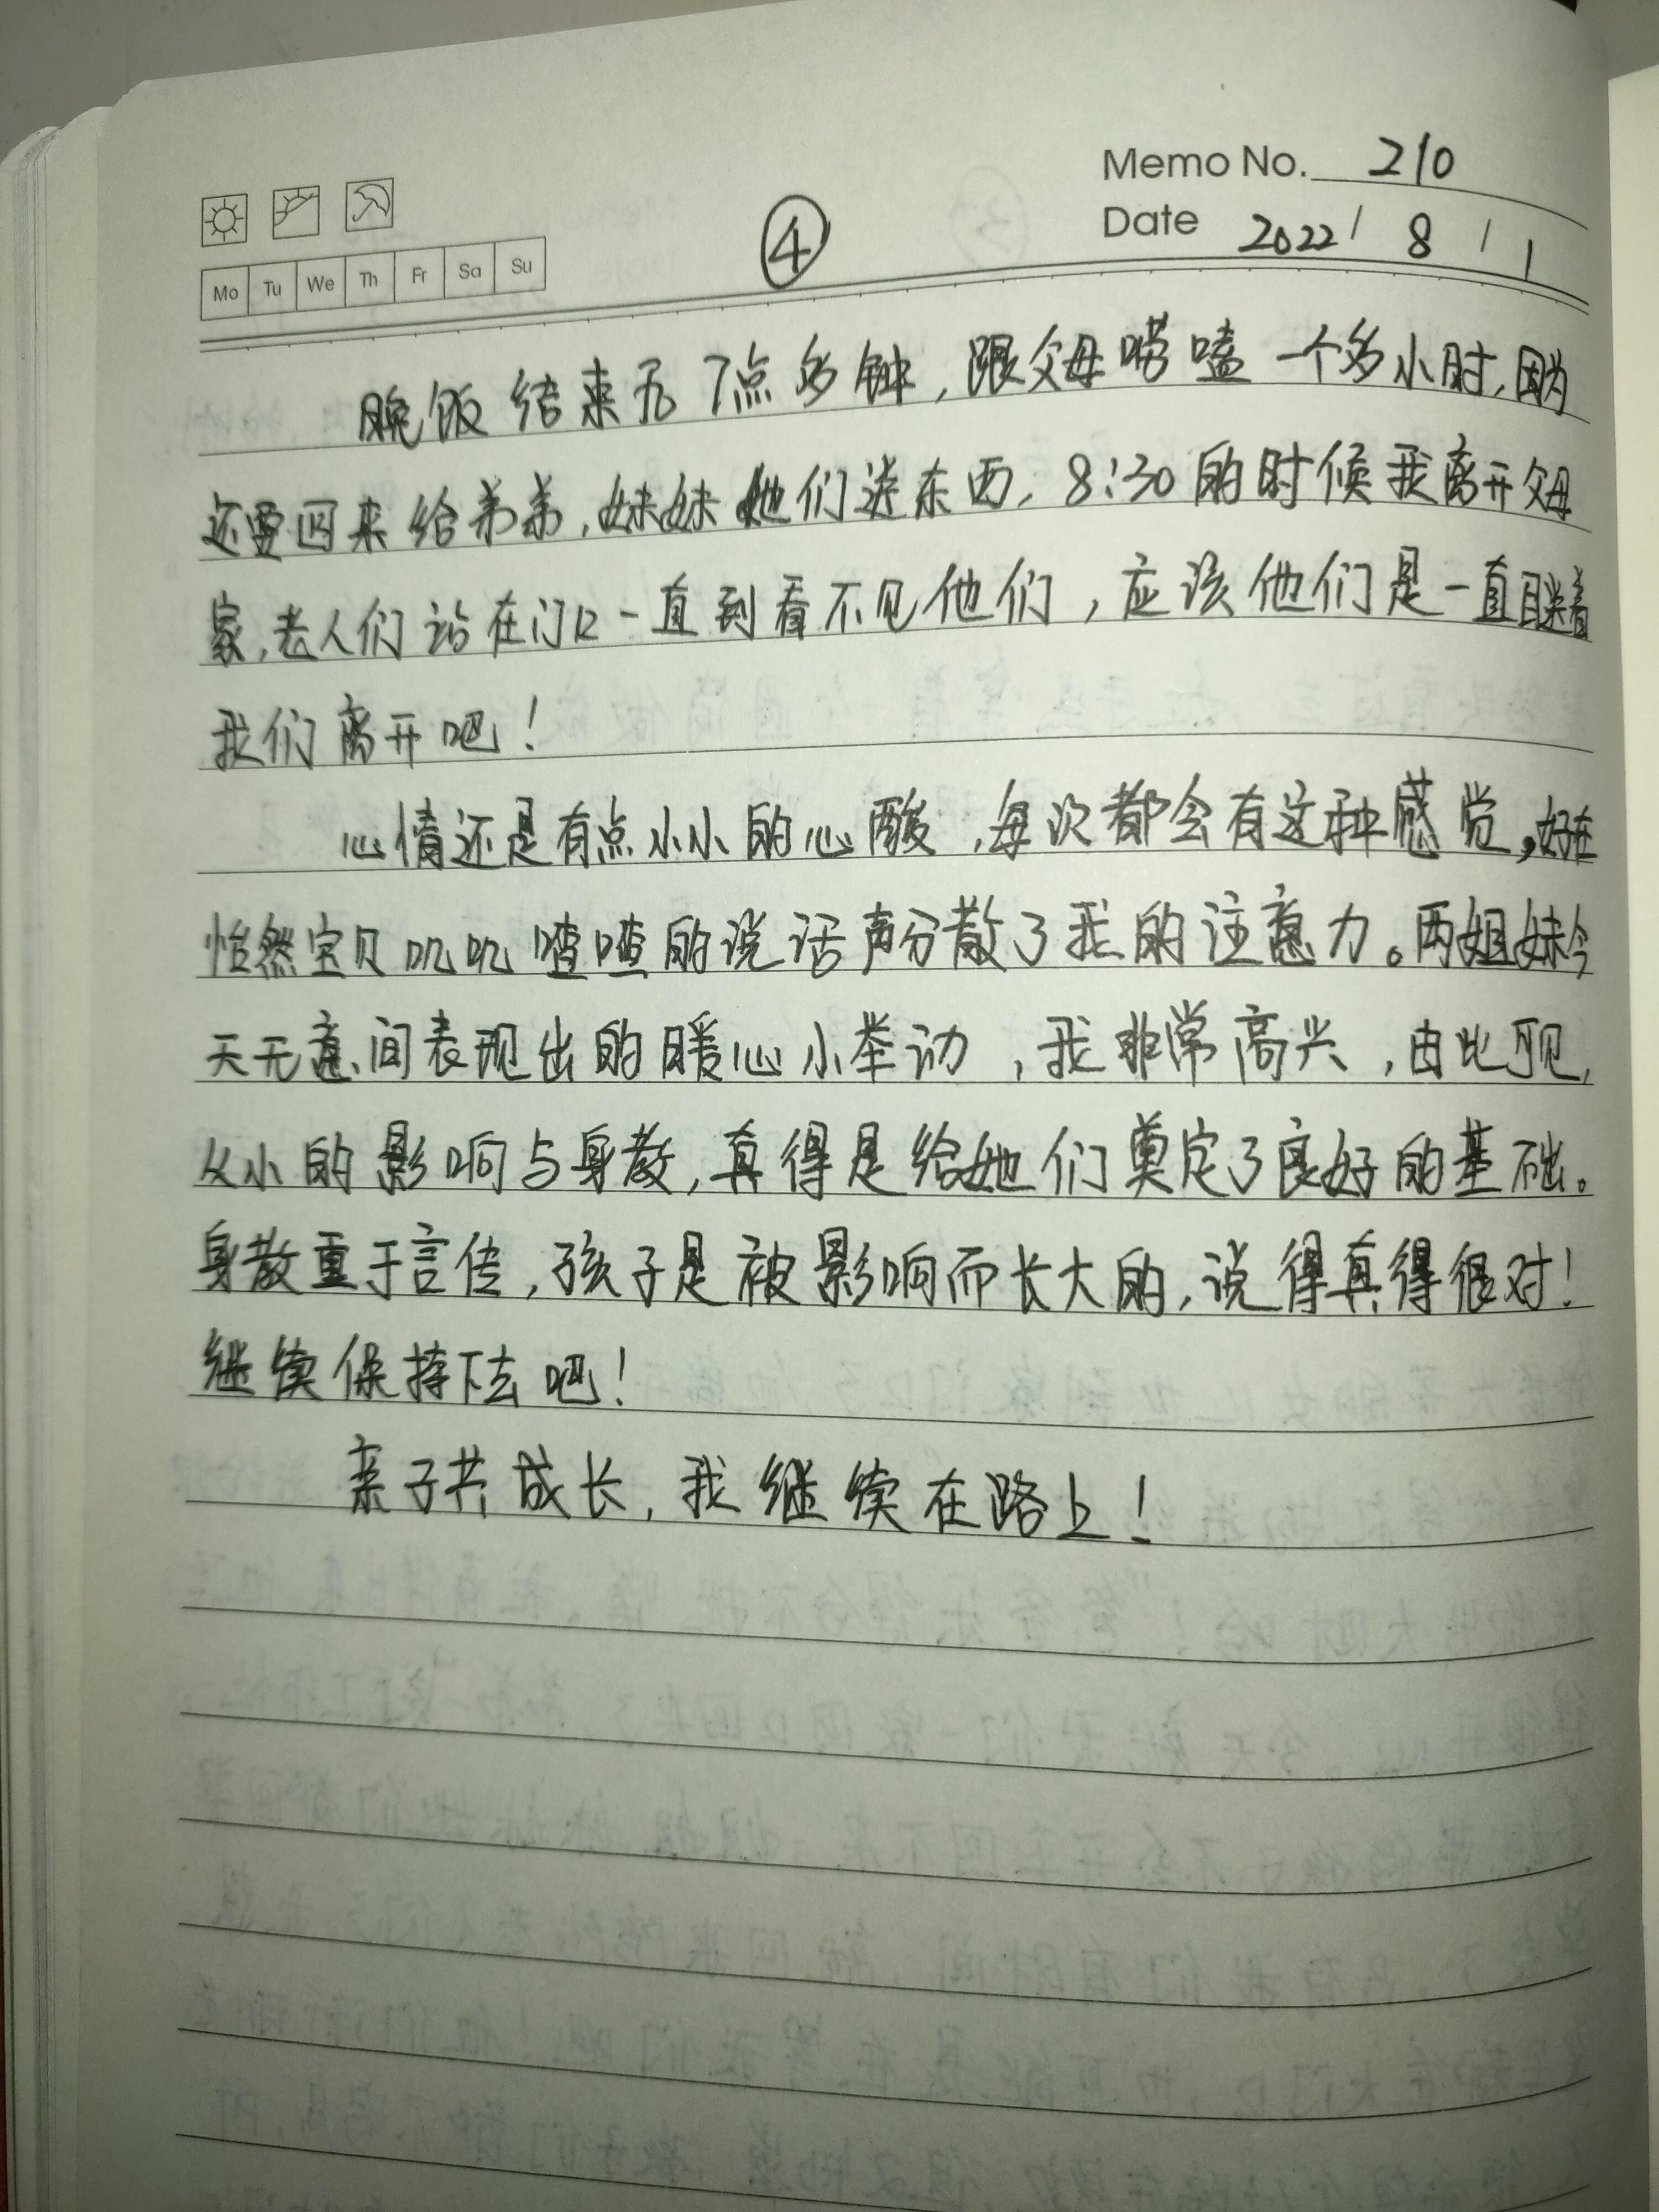 Memo No. 210
④
Date 2022 / 8 / 1
Mo Tu We Th Fr Sa Su
晚饭结束有7点多钟，跟父母唠嗑一个多小时，因为
还要回来给弟弟，妹妹他们送东西，8:30的时候我离开父母
家，老人们站在门口一直到看不见他们，应该他们是一直瞅着
我们离开吧！
心情还是有点小小的心酸，每次都会有这种感觉，好在
怡然宝贝叽叽喳喳的说话声分散了我的注意力。两姐妹今
天无意间表现出的暖心小举动，我非常高兴，由此可见，
从小的影响与身教，真得是给她们奠定了良好的基础。
身教重于言传，孩子是被影响而长大的，说得真得很对！
继续保持下去吧！
亲子共成长，我继续在路上！